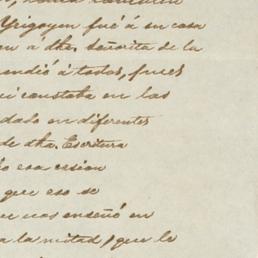 Yrigoyen fué á su casa
n a dha. señorita de la
endió á todos, pues
i constaba en las
dado en diferentes
de dha. Escritura
o esa cesion
que eso se
nos enseñó en
a la mitad, que le